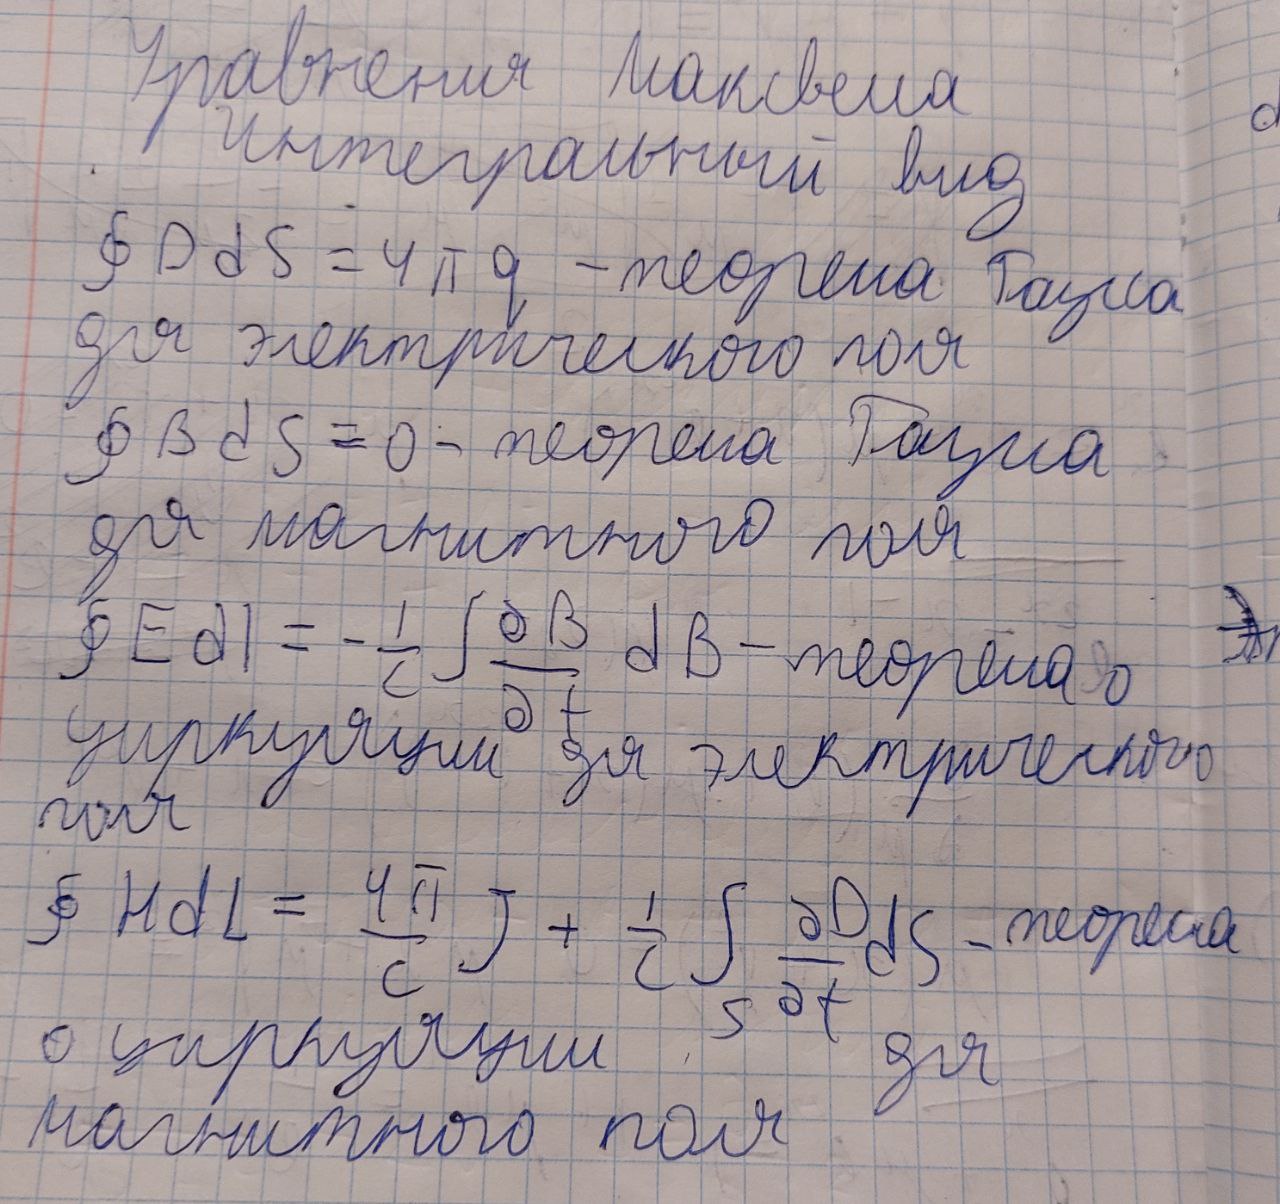 Уравнения Максвела
Интегральный вид
∮ D dS = 4π q - теорема Гаусса
для электрического поля
∮ B dS = 0 - теорема Гаусса
для магнитного поля
∮ E dl = - 1/c ∫ ∂B/∂t dB - теорема о
циркуляции для электрического
поля
∮ H dL = 4π/c J + 1/c ∫_S ∂D/∂t dS - теорема
о циркуляции для
магнитного поля